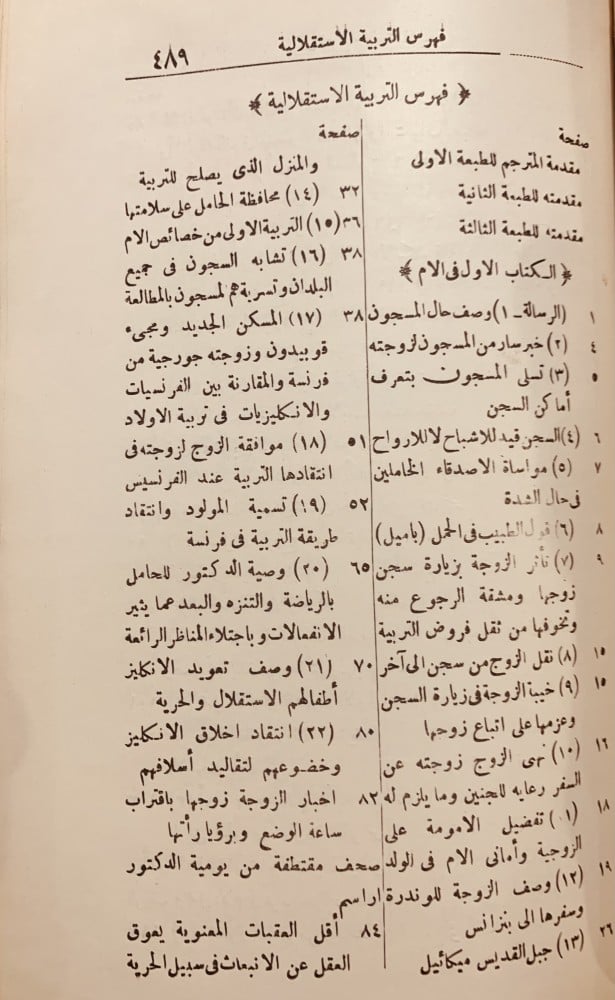 فهرس التربية الاستقلالية
٤٨٩
﴿ فهرس التربية الاستقلالية ﴾
صفحة
مقدمة المترجم للطبعة الاولى
مقدمته للطبعة الثانية
مقدمته للطبعة الثالثة
﴿ الكتاب الاول فى الام ﴾
١ (الرسالة ـ ١) وصف حال المسجون
٤ (٢) خبر سار من المسجون لزوجته
٥ (٣) تسلى المسجون بتعرف
أماكن السجن
٦ (٤) السجن قيد للاشباح لا للارواح
٧ (٥) مواساة الاصدقاء الخاملين
فى حال الشدة
٨ (٦) قول الطبيب فى الحمل (باميل)
٩ (٧) تأثر الزوجة بزيارة سجن
زوجها ومشقة الرجوع منه
وتخوفها من ثقل فروض التربية
١٥ (٨) نقل الزوج من سجن الى آخر
١٥ (٩) خيبة الزوجة فى زيارة السجن
وعزمها على اتباع زوجها
١٦ (١٠) نهى الزوج زوجته عن
السفر رعايه للجنين وما يلزم له
١٨ (١٠) تفضيل الامومة على
الزوجية وأمانى الام فى الولد
١٩ (١٢) وصف الزوجة للوندرة
وسفرها الى بنزانس
٢٦ (١٣) جبل القديس ميكائيل
صفحة
والمنزل الذى يصلح للتربية
٣٢ (١٤) محافظة الحامل على سلامتها
٣٦ (١٥) التربية الاولى من خصائص الام
٣٨ (١٦) تشابه السجون فى جميع
البلدان وتسرية هم المسجون بالمطالعة
٣٨ (١٧) المسكن الجديد ومجىء
قوبيدون وزوجته جورجية من
فرنسة والمقارنة بين الفرنسيات
والانكليزيات فى تربية الاولاد
٥١ (١٨) موافقة الزوج لزوجته فى
انتقادها التربية عند الفرنسيس
٥٢ (١٩) تسمية المولود وانتقاد
طريقة التربية فى فرنسة
٦٥ (٢٠) وصية الدكتور للحامل
بالرياضة والتنزه والبعد عما يثير
الانفعالات وباجتلاء المناظر الرائعة
٧٠ (٢١) وصف تعويد الانكليز
أطفالهم الاستقلال والحرية
٨٠ (٢٢) انتقاد اخلاق الانكليز
وخضوعهم لتقاليد أسلافهم
٨٢ اخبار الزوجة زوجها باقتراب
ساعة الوضع وبرؤيا رأتها
صحف مقتطفة من يومية الدكتور
اراسم
٨٤ أقل العقبات المعنوية يعوق
العقل عن الانبعاث فى سبيل الحرية